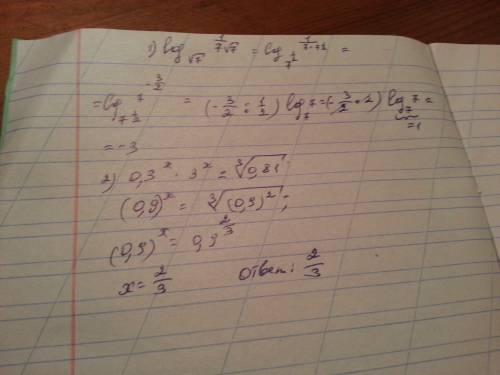 1) log_{√7} 1/(7√7) = log_{7^{1/2}} 1/(7·7^{1/2}) =
= log_{7^{1/2}} 7^{-3/2} = (-3/2 : 1/2) log_7 7 = (-3/2 · 2) log_7 7 = 
=1
= -3
2) 0,3^x · 3^x = ∛0,81
(0,9)^x = ∛(0,9)^2;
(0,9)^x = 0,9^{2/3}
x = 2/3 Ответ: 2/3